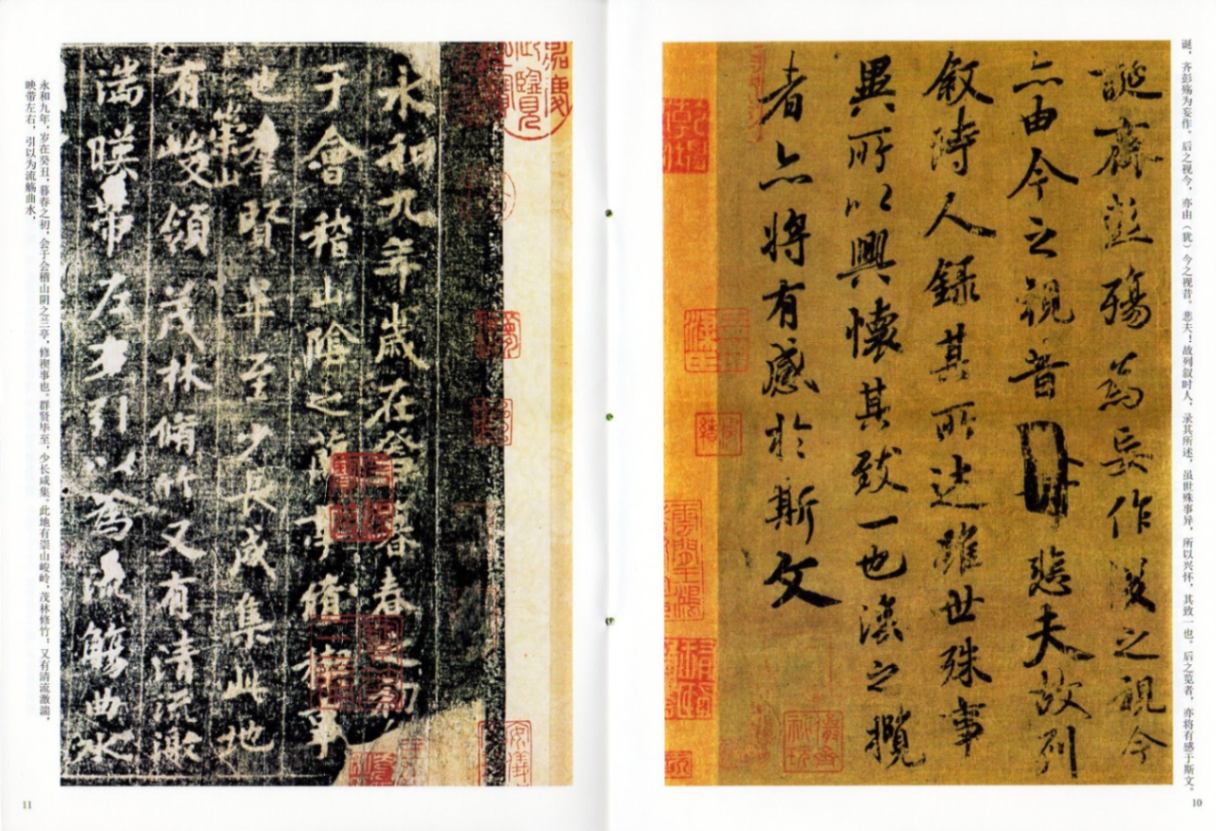 诞，齐彭殇为妄作。后之视今，亦由（犹）今之视昔。悲夫！故列叙时人，录其所述，虽世殊事异，所以兴怀，其致一也。后之览者，亦将有感于斯文。
誕齊彭殤為妄作後之視今
亦由今之視昔悲夫故列
敘時人錄其所述雖世殊事
異所以興懷其致一也後之攬
者亦將有感於斯文
10
永和九年歲在癸丑暮春之初
于會稽山陰之蘭亭脩禊事
也羣賢畢至少長咸集此地
有崇山峻領茂林脩竹又有清流激
湍暎帶左右引以為流觴曲水
永和九年，岁在癸丑，暮春之初，会于会稽山阴之兰亭，修禊事也。群贤毕至，少长咸集。此地有崇山峻岭，茂林修竹，又有清流激湍，
映带左右，引以为流觞曲水，
11